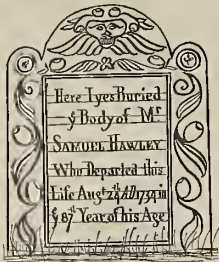 Here Lyes Buried
ẙ Body of Mʳ
SAMUEL HAWLEY
Who Departed this
Life Augᵗ 24ᵗʰ AD 1734 in
ẙ 87ᵗʰ Year of his Age